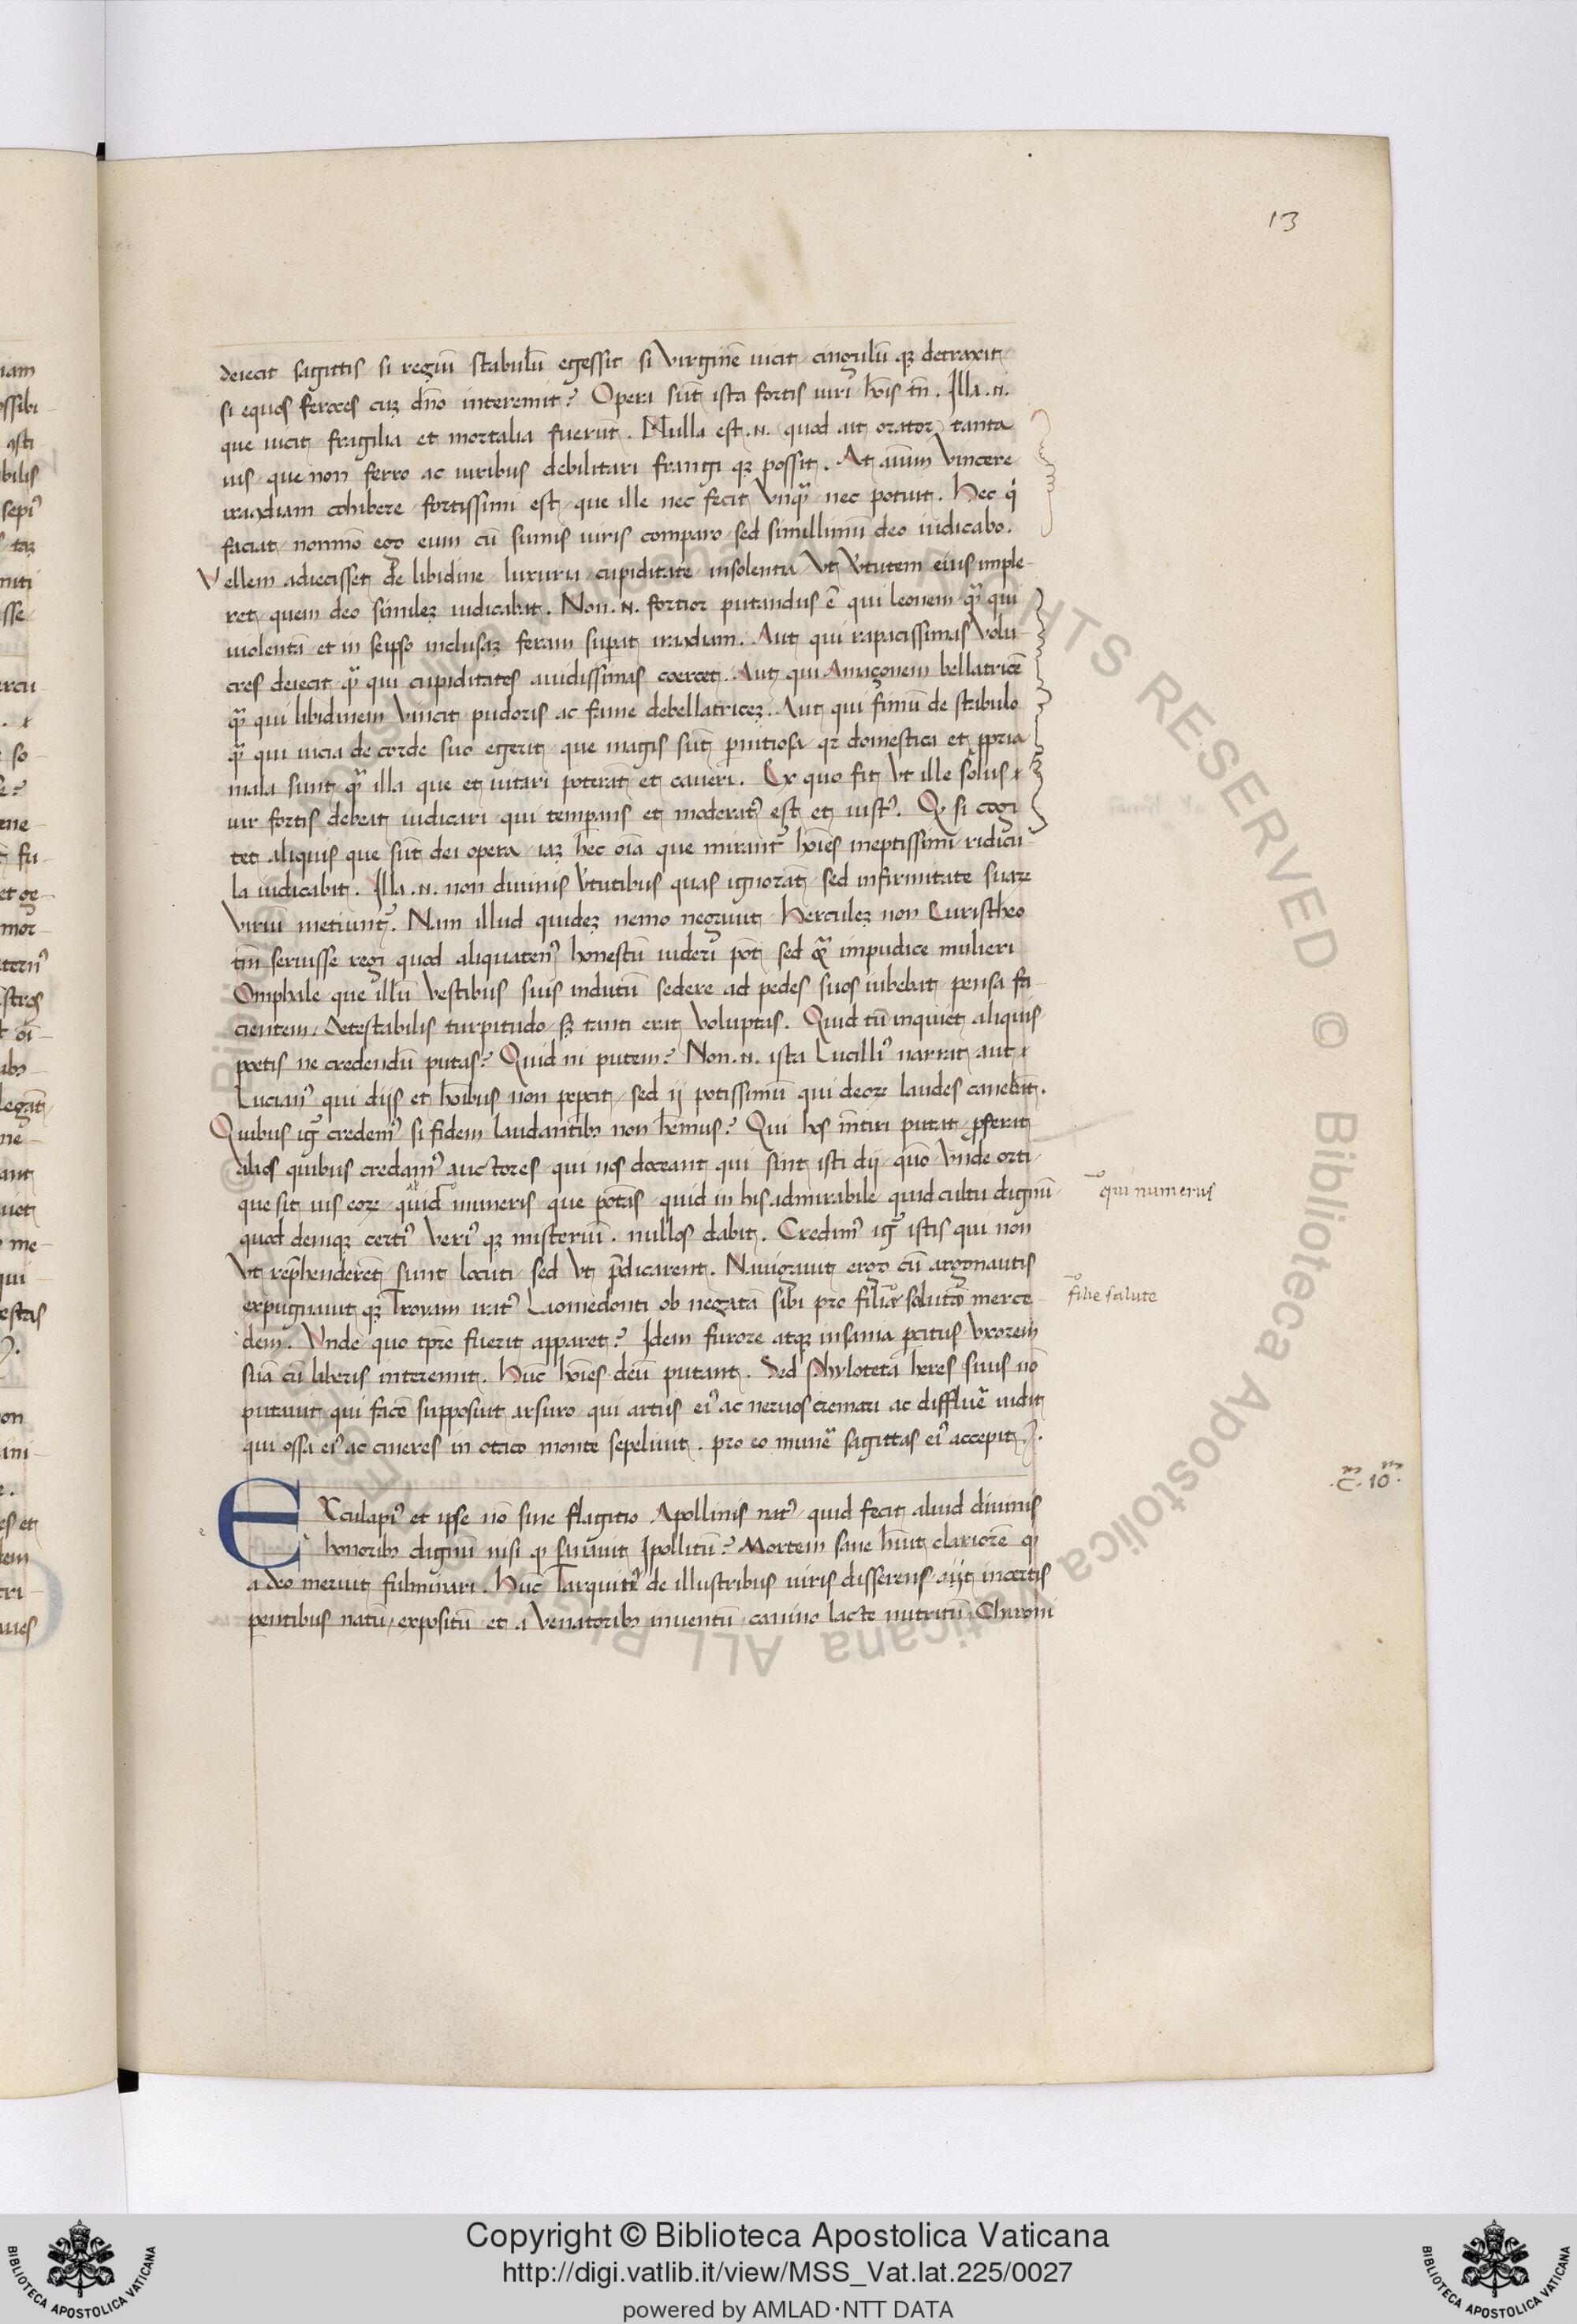 13
deiecit sagittis / si regiū stabulū egessit / si Virginē uicit / cingulū qꝫ detraxit /
si equos feroces cuꝫ dn̄o interemit? Opera sūt ista fortis uiri hoīs tn̄. Illa .n.
que uicit fragilia et mortalia fuerūt. Nulla est .n. quod ait orator tanta
uis / que non ferro ac uiribus debilitari frangi qꝫ possit. At aīum Vincere
iracūdiam cohibere / fortissimi est / que ille nec fecit Vnqꝫ nec potuit. Hec q̇
faciat / nōnmō ego eum cū sūmis uiris comparo / sed simillimū deo iudicabo.
Vellem adiecisset de libidine / luxuria / cupiditate / insolentia / Vt V̾tutem eius imple-
ret / quem deo simileꝫ iudicabat. Non .n. fortior putandus ē qui leonem qͣ̄ qui
uiolentā et in seipso inclusaꝫ feram suꝑat iracūdiam. Aut qui rapacissimas Volu-
cres deiecit qͣ̄ qui cupiditates auidissimas coercet. Aut qui Amaçonem bellatricē
qͣ̄ qui libidinem Vincit pudoris ac fame debellatriceꝫ. Aut qui fimū de stabulo
qͣ̄ qui uicia de corde suo egerit / que magis sūt ꝑnitiosa qꝛ domestica et ꝓpria
mala sunt qͣ̄ illa que et uitari poterāt et caueri. Ex quo fit Vt ille solus
uir fortis debeat iudicari qui temperans et moderatꝰ est et iustꝰ. Qꝫ si cogi
tet aliquis que sūt dei opera / iaꝫ hec oīa que mirant᷑ hoīes ineptissimi ridicu-
la iudicabit. Illa .n. non diuinis V̾tutibus quas ignorāt / sed infirmitate suaꝝ
Viriū metiunt᷑. Nam illud quideꝫ nemo negauit Herculeꝫ non Euristheo
tm̄ seruisse regi quod aliquatenꝰ honestū uideri pōt / sed et̄ impudice mulieri
Omphale que illū Vestibus suis indutū sedere ad pedes suos iubebat pensa fa-
cientem. Detestabilis turpitudo / sꝫ tanti erat Voluptas. Quid tū inquiet aliquis
poetis ne credendū putas? Quid ni putem? Non .n. ista Lucillꝰ narrat aut
Lucianꝰ qui diis et hoībus non peꝑcit / sed ij potissimū qui deoꝝ laudes canebāt.
Quibus ig͛ credemꝰ si fidem laudantibꝫ non hēmus? Qui hos mētiri putat / ꝓferat
alios quibus credamꝰ auctores / qui nos doceant qui sint isti dij / quō Vnde orti /
que sit uis eoꝝ / quid numeris / que potās / quid in his admirabile / quid cultu dignū
quod deniqꝫ certiꝰ Veriꝰ qꝫ misteriū . nullos dabit. Credimꝰ ig͛ istis qui non
Vt rep̄henderēt sunt locuti / sed Vt p̄dicarent. Nauigauit ergo cū argonautis
expugnauit qꝫ Troyam iratꝰ Laomedonti ob negatā sibi pro filia saluta merce
dem. Vnde quo tp̄re fuerit apparet? Idem furore atqꝫ insania ꝑcitus Vxorem
suā cū liberis interemit. Hūc hoīes deū putant. Sed phylotetā heres suus nō
putauit qui facē supposuit arsuro / qui artus eiꝰ ac neruos cremari ac diffluē uidit
qui ossa eiꝰ ac cineres in oteo monte sepeliuit . pro eo munē sagittas eiꝰ accepit.
EXculapiꝰ et ipse nō sine flagitio Apollinis natꝰ quid fecit aliud diuinis
honoribꝫ dignū nisi qꝫ sanauit Ipollitū? Mortem sane hūit clariorē qꝫ
a deo meruit fulminari. Hūc Tarquitiꝰ de illustribus uiris disserens ait incertis
pentibus natū / expositū et a Venatoribꝫ inuentū / canino lacte nutritū Chironi
qui numerus
filie salute
.c̄. 10.
Copyright © Biblioteca Apostolica Vaticana
http://digi.vatlib.it/view/MSS_Vat.lat.225/0027
powered by AMLAD·NTT DATA